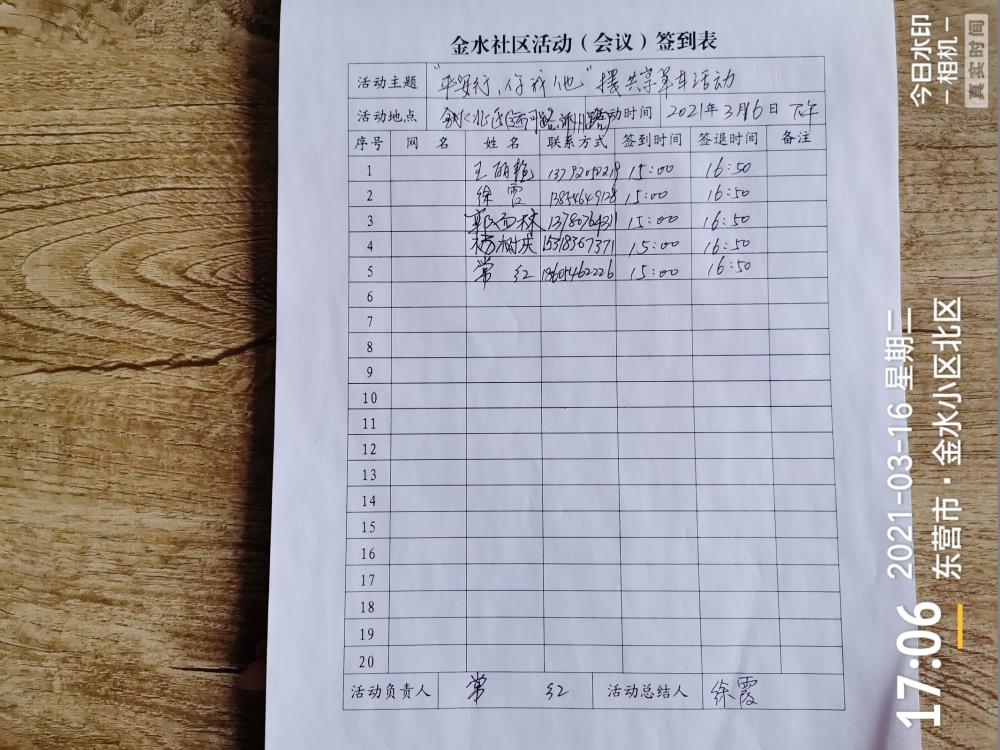 金水社区活动（会议）签到表
活动主题 "平安行、你我他" 摆共享单车活动
活动地点 活动时间 2021年3月16日 下午
序号 网 名 姓 名 联系方式 签到时间 签退时间 备注
1 王丽艳 15:00 16:50
2 徐霞 15:00 16:50
3 15:00 16:50
4 杨树庆 15318367371 15:00 16:50
5 常红 15:00 16:50
6
7
8
9
10
11
12
13
14
15
16
17
18
19
20
活动负责人 常 红 活动总结人 徐霞
今日水印
-相机-
真实时间
17:06 2021-03-16 星期二
东营市·金水小区北区